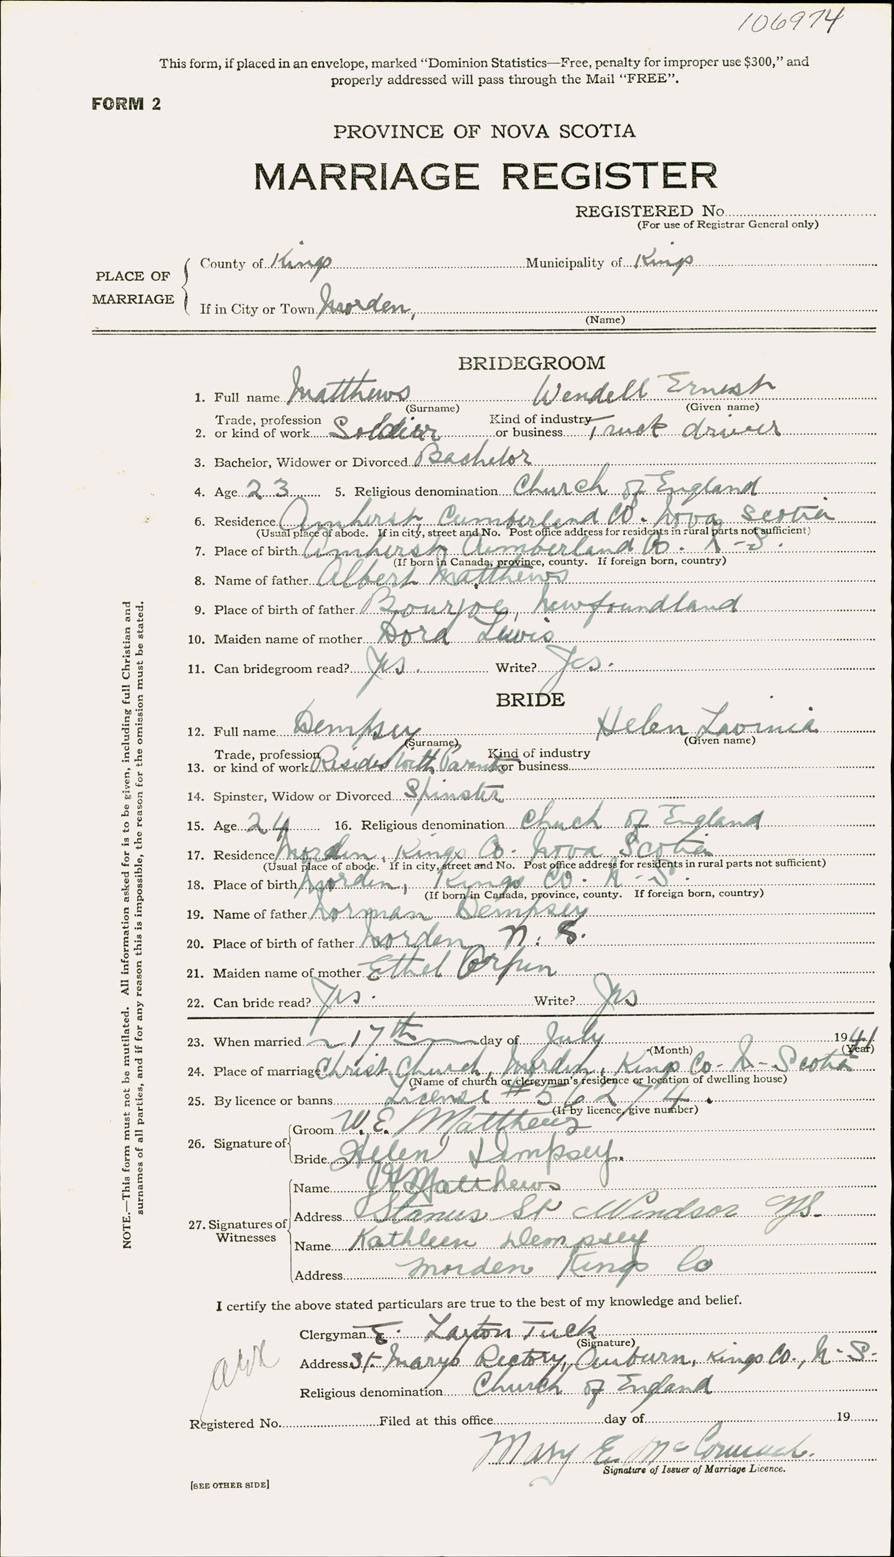 106974
This form, if placed in an envelope, marked “Dominion Statistics—Free, penalty for improper use $300,” and
properly addressed will pass through the Mail “FREE”.
FORM 2
PROVINCE OF NOVA SCOTIA
MARRIAGE REGISTER
REGISTERED No.
(For use of Registrar General only)
PLACE OF MARRIAGE
County of Kings Municipality of Kings
If in City or Town Morden,
(Name)
BRIDEGROOM
1. Full name Matthews Wendell Ernest
(Surname) (Given name)
2. Trade, profession or kind of work Soldier Kind of industry or business Truck driver
3. Bachelor, Widower or Divorced Bachelor
4. Age 23 5. Religious denomination Church of England
6. Residence Amherst, Cumberland Co. Nova Scotia
(Usual place of abode. If in city, street and No. Post office address for residents in rural parts not sufficient)
7. Place of birth Amherst Cumberland Co. N-S.
(If born in Canada, province, county. If foreign born, country)
8. Name of father Albert Matthews
9. Place of birth of father Bourjoe, Newfoundland
10. Maiden name of mother Dora Lewis
11. Can bridegroom read? Yes. Write? Yes.
BRIDE
12. Full name Dempsey Helen Lavinia
(Surname) (Given name)
13. Trade, profession or kind of work Resides with Parents Kind of industry or business
14. Spinster, Widow or Divorced Spinster
15. Age 24 16. Religious denomination Chuch of England
17. Residence Morden, Kings Co. Nova Scotia
(Usual place of abode. If in city, street and No. Post office address for residents in rural parts not sufficient)
18. Place of birth Morden, Kings Co. N-S.
(If born in Canada, province, county. If foreign born, country)
19. Name of father Norman Dempsey
20. Place of birth of father Morden N. S.
21. Maiden name of mother Ethel Orpin
22. Can bride read? Yes. Write? Yes
23. When married 17th day of July 1941
(Month) (Year)
24. Place of marriage Christ Church, Morden, Kings Co- N-Scotia
(Name of church or clergyman's residence or location of dwelling house)
25. By licence or banns License #56274.
(If by licence, give number)
26. Signature of Groom W. E. Matthews
Bride Helen Dempsey.
27. Signatures of Witnesses
Name Matthews
Address St Windsor NS.
Name Kathleen Dempsey
Address Morden Kings Co
I certify the above stated particulars are true to the best of my knowledge and belief.
Clergyman E. Laxton Tuck
(Signature)
Address St. Marys Rectory, Auburn, Kings Co., N-S-
Religious denomination Church of England
Registered No. Filed at this office day of 19
Mary E. McCormack.
Signature of Issuer of Marriage Licence.
[SEE OTHER SIDE]
NOTE.—This form must not be mutilated. All information asked for is to be given, including full Christian and
surnames of all parties, and if for any reason this is impossible, the reason for the omission must be stated.